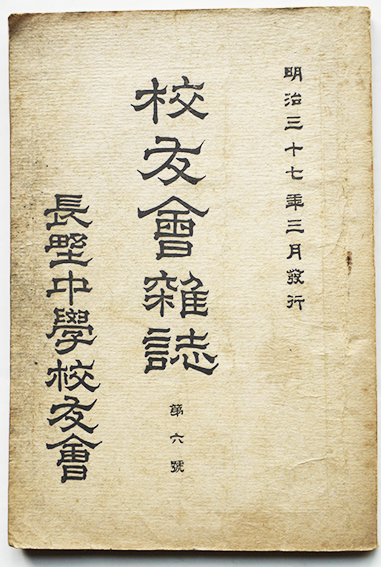 明治三十七年三月發行
校友會雜誌 第六號
長野中學校友會